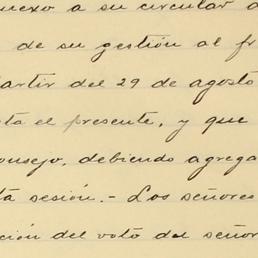 nexo a su circular d
de su gestión al fr
artir del 29 de agosto
ta el presente, y que
onsejo, debiendo agrega
ta sesión.- Los señores
ción del voto del señor